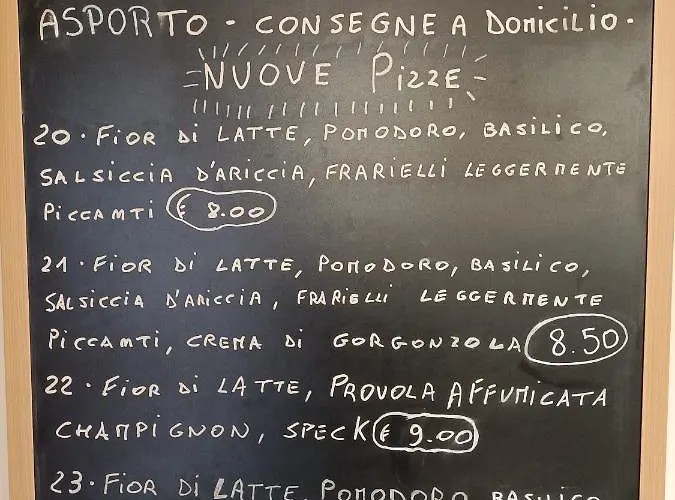 ASPORTO - CONSEGNE A DOMICILIO.
NUOVE PIZZE
20. FIOR DI LATTE, POMODORO, BASILICO,
SALSICCIA D'ARICCIA, FRARIELLI LEGGERMENTE
PICCAMTI € 8.00
21. FIOR DI LATTE, POMODORO, BASILICO,
SALSICCIA D'ARICCIA, FRARIELLI LEGGERMENTE
PICCAMTI, CREMA DI GORGONZOLA 8.50
22. FIOR DI LATTE, PROVOLA AFFUMICATA
CHAMPIGNON, SPECK € 9.00
23. FIOR DI LATTE, POMODORO, BASILICO